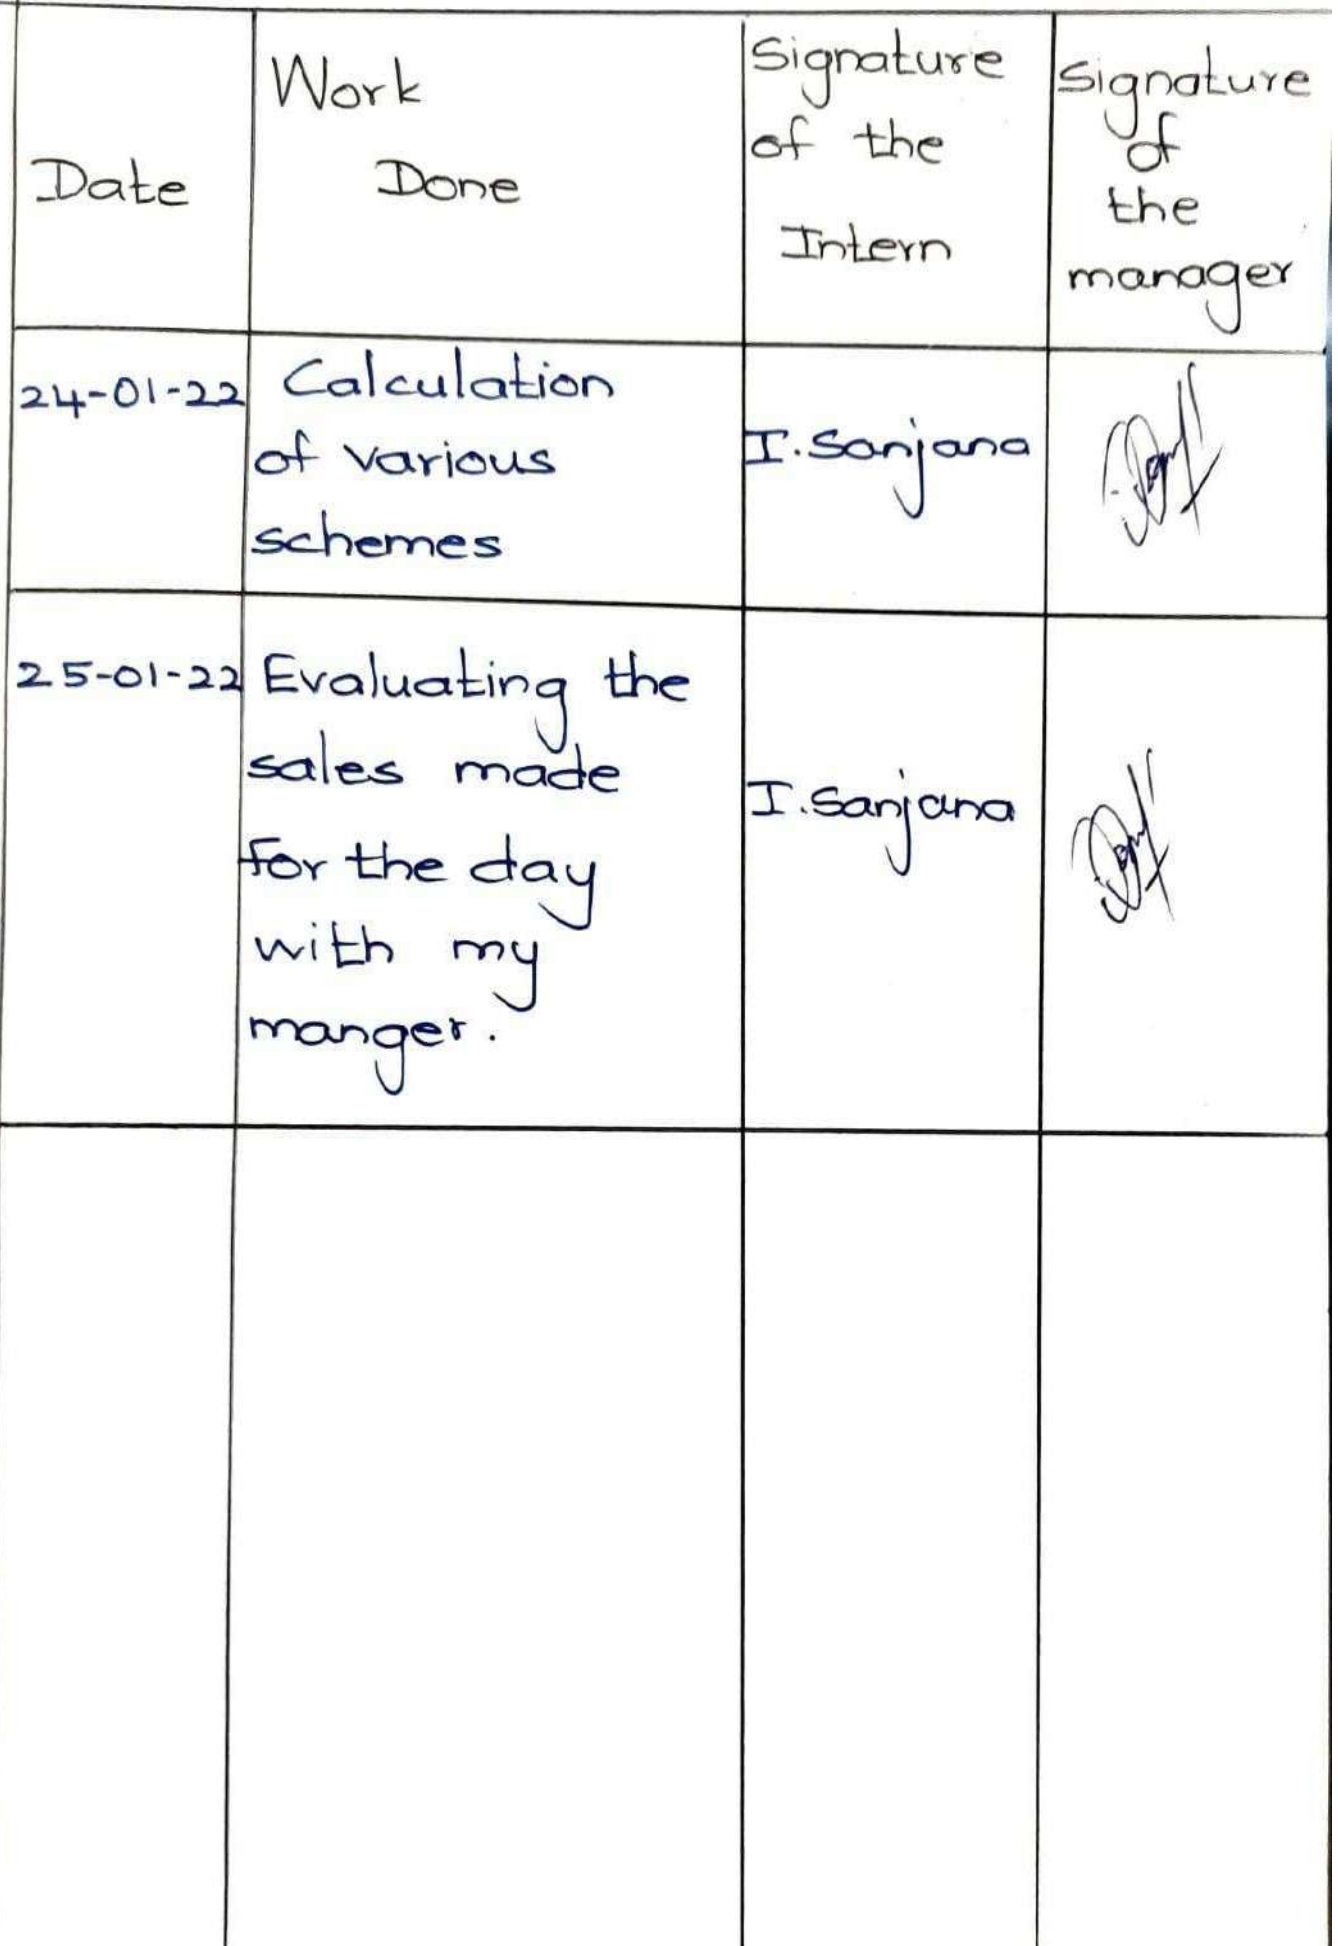 Date
Work
Done
Signature
of the
Intern
Signature
of
the
manager
24-01-22
Calculation
of various
schemes
I. Sanjana
25-01-22
Evaluating the
sales made
for the day
with my
manger.
I. Sanjana